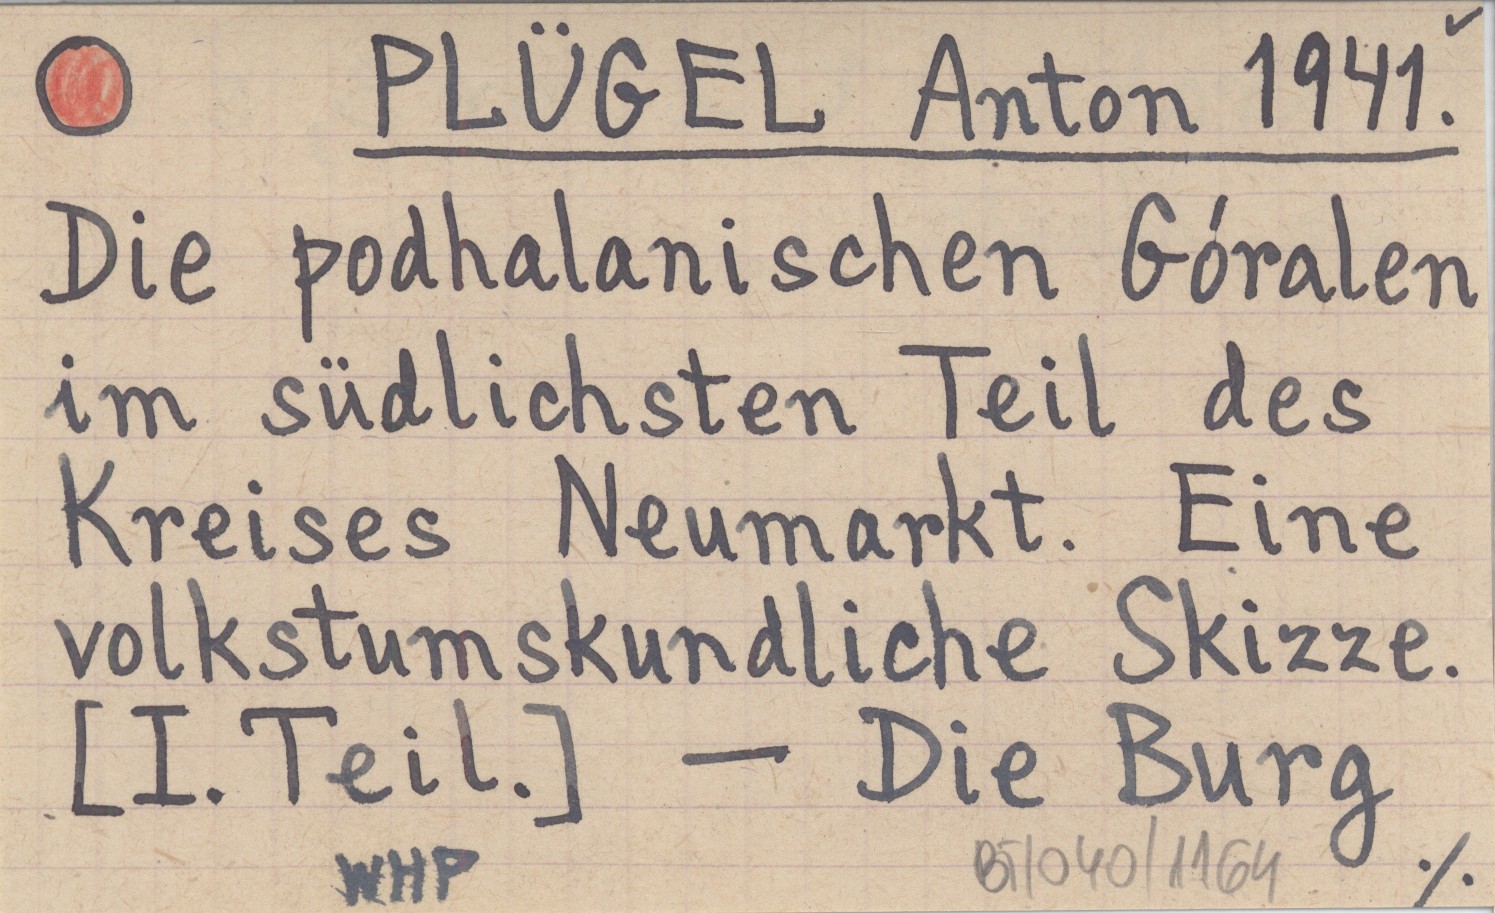 PLÜGEL Anton 1941.
Die podhalanischen Góralen
im südlichsten Teil des
Kreises Neumarkt. Eine
volkstumskundliche Skizze.
[I. Teil.] — Die Burg
WHP BT/040/1164 ./.